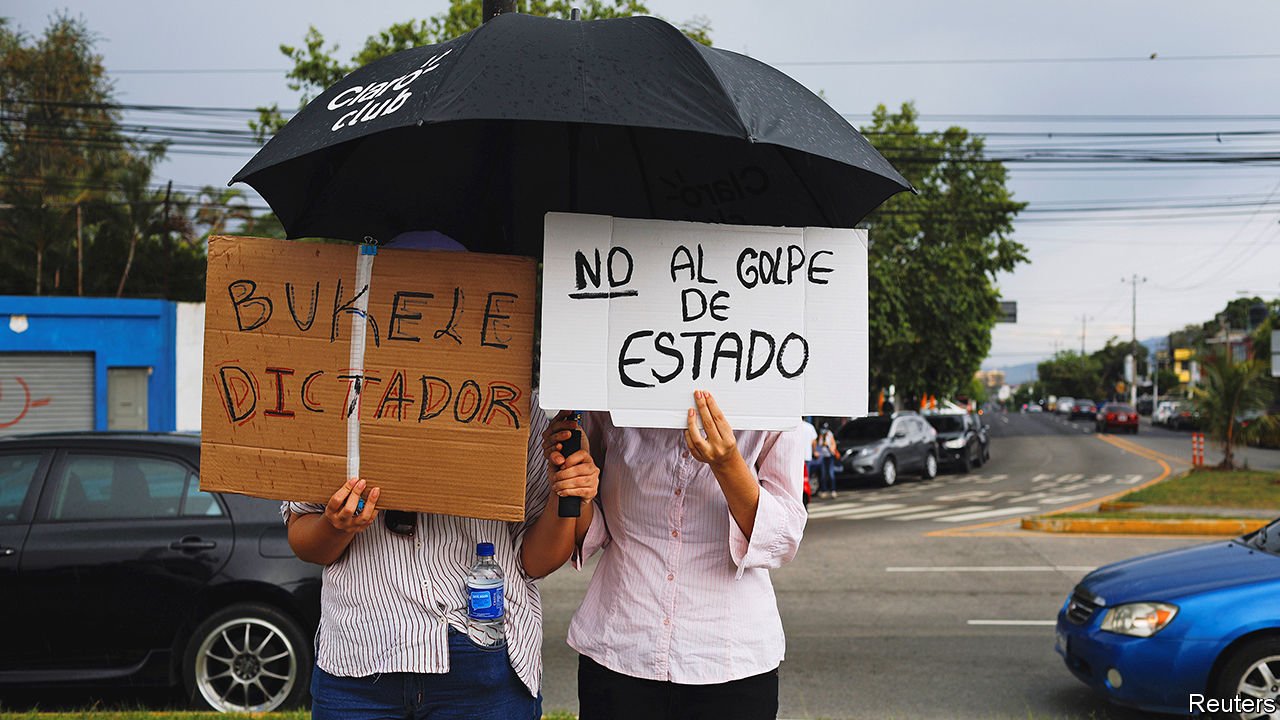 Claro
club
Claro
BUKELE
DICTADOR
NO AL GOLPE
DE
ESTADO
Reuters